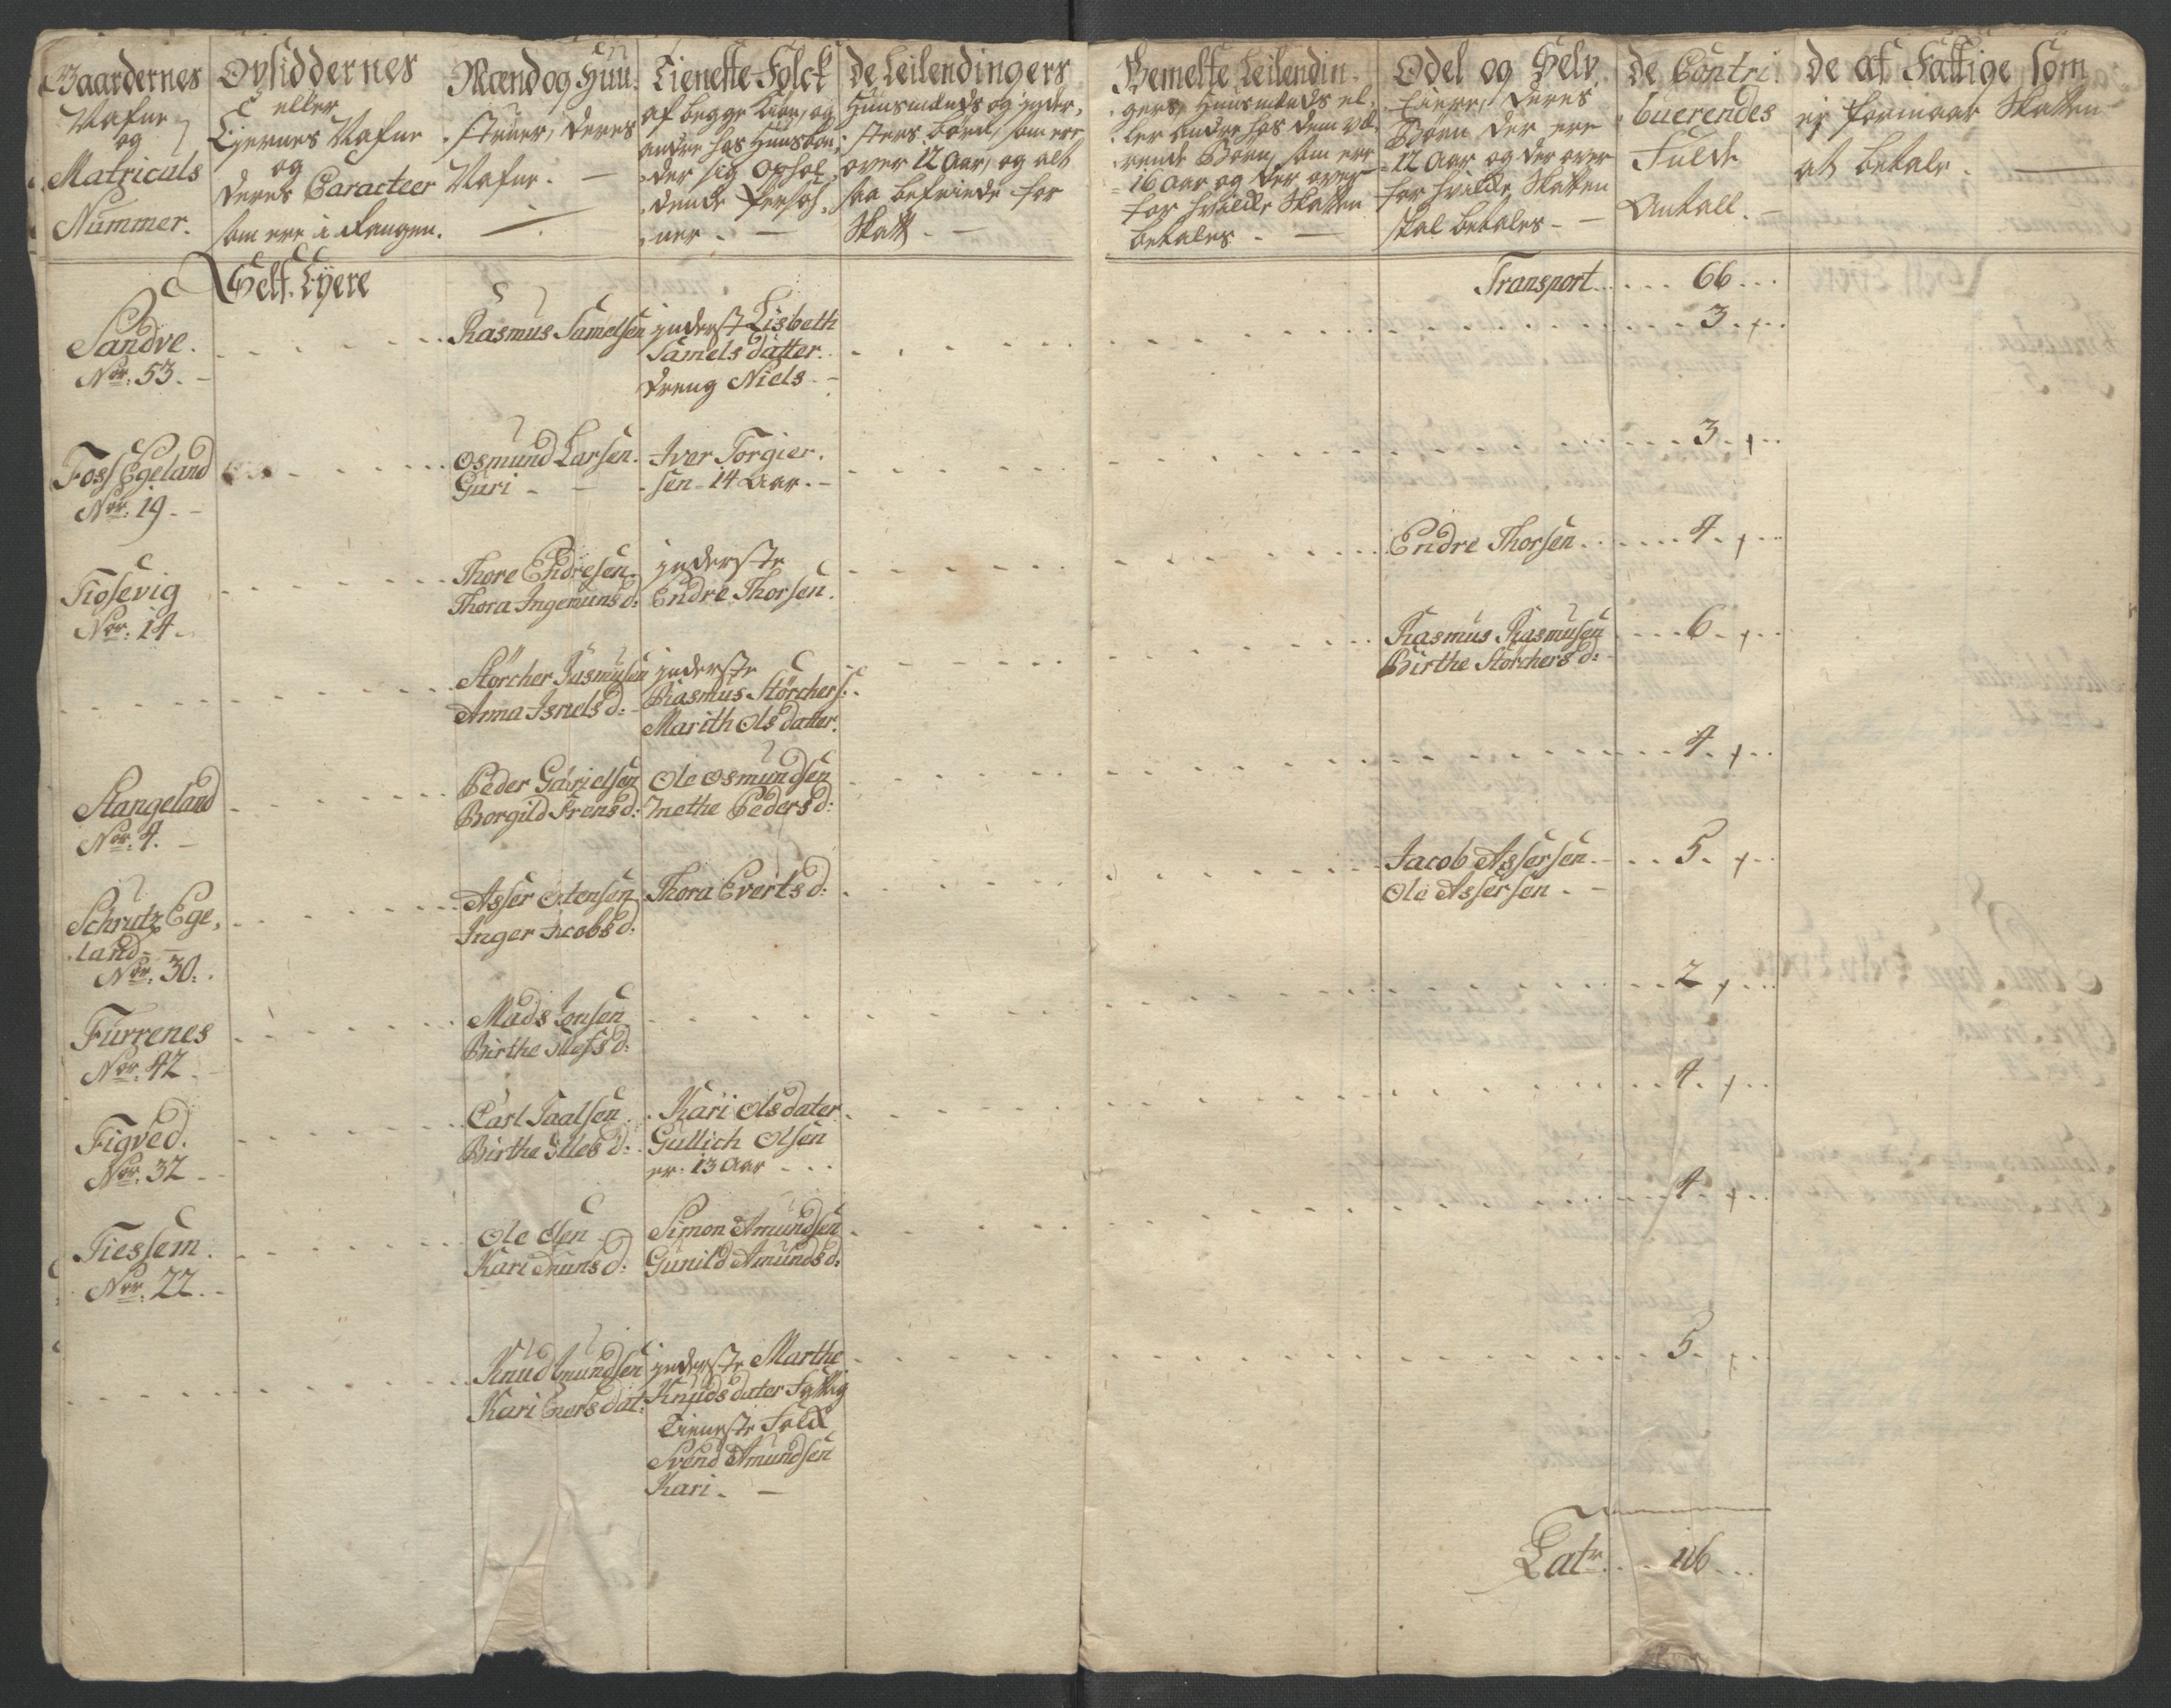 Gaardernes
Nafne
og
Matriculs
Nummer.
Opsiddernes
eller
Ejernes Nafne
og
deres Caracteer
som ere i Rangen.
Mænd og Huu-
struer, deres
Nafne.
Tieneste-Folck
af begge Kiøn, og
andre hos Huusbon-
der sig ophol-
dende Persoh-
ner.
De Leilendingers
Huusmænds og inder-
sters børn, som ere
over 12 Aar, og alt
saa befriede for
Skatt.
Bemelte Leilendin-
gers, Huusmænds el-
ler andre hos dem væ-
rende Børn, som ere
16 Aar og der over
for hvilcke Skatten
betales.
Odel og Selv
Eiere, deres
Børn der ere
12 Aar og der over
for hvilcke Skatten
skal betales
de Contri-
buerendes
Fulde
Antall.
de af Fattige som
ej formaar Skatten
at betale.
Self. Eyere
Transport 66
Sandve.
No. 53.
Rasmus Samelsen
inderst Lisbeth
Samels datter.
dreng Niels
3
Foss Egeland
No. 19
Osmund Larsen.
Guri
Iver Torgier-
sen 14 Aar.
3
Fiosevig
No. 14
Thore Endresen.
Thora Ingemunsd:
inderste
Endre Thorsen.
Endre Thorsen
4
Störcher Rasmusen
Anna Israelsd:
inderste
Rasmus Störchers:
Marith Olsdatter.
Rasmus Rasmusen
Birthe Störchersd:
6
Stangeland
No. 4.
Peder Gabrielsen
Borgild d:
Ole Osmundsen
Methe Pedersd:
4
Schrutz Ege-
land
No. 30.
Asser Ostensen
Inger Jacobsd:
Thora Evertsd:
Jacob Assersen
Ole Assersen
5
Furrenes
No. 42
Mads Jonsen
Birthe d:
2
Figved.
No. 32
Carl Paalsen
Birthe d:
Kari Olsdater
Gullich Olsen
er: 13 Aar
4
Fiessem.
No. 22.
Ole Olsen
Kari d:
Simon Amundsen
Gunild Amundsd:
4
Knud Amundsen
Kari Enersdat:
inderste Marthe
Knudsdater Fattig
Tieneste Folck
Svend Amundsen
Kari.
5
Latr. 106